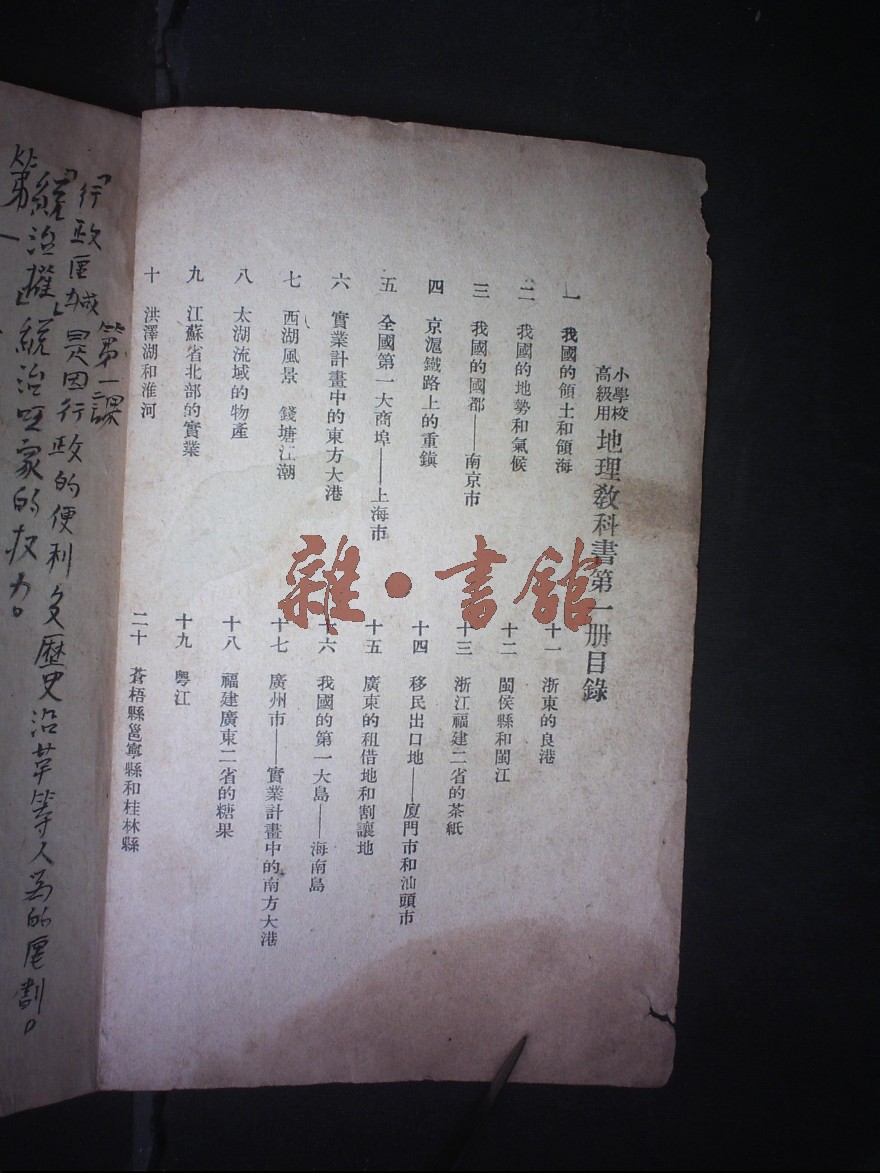 小學校高級用 地理教科書第一册目錄
一 我國的領土和領海
二 我國的地勢和氣候
三 我國的國都——南京市
四 京滬鐵路上的重鎮
五 全國第一大商埠——上海市
六 實業計畫中的東方大港
七 西湖風景 錢塘江潮
八 太湖流域的物產
九 江蘇省北部的實業
十 洪澤湖和淮河
十一 浙東的良港
十二 閩侯縣和閩江
十三 浙江福建二省的茶紙
十四 移民出口地——廈門市和汕頭市
十五 廣東的租借地和割讓地
十六 我國的第一大島——海南島
十七 廣州市——實業計畫中的南方大港
十八 福建廣東二省的糖果
十九 粵江
二十 蒼梧縣邕寧縣和桂林縣
雜·書館
第一課
「行政區域」是因行政的便利及歷史沿革等人為的區劃。
「統治權」統治國家的权力。
第一